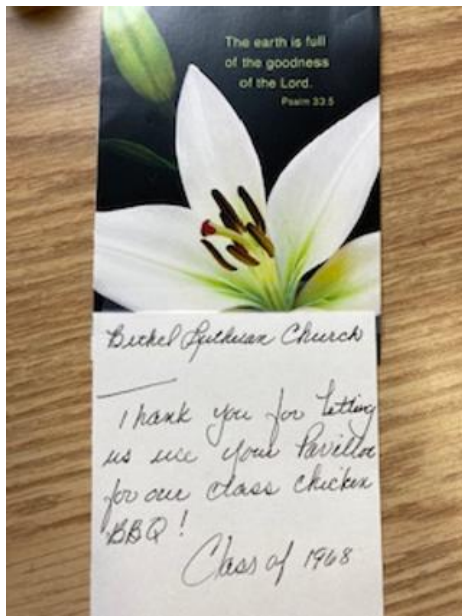 The earth is full
of the goodness
of the Lord.
Psalm 33:5
Bethel Lutheran Church
Thank you for letting
us use your Pavillon
for our class chicken
BBQ!
Class of 1968